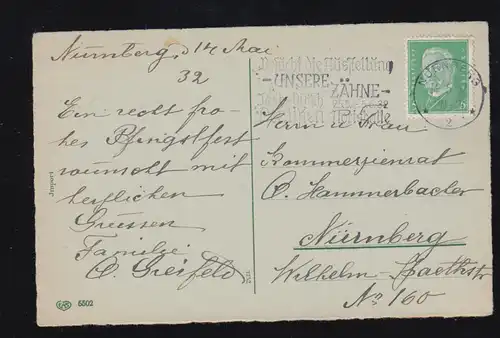 Nürnberg, d 14 Mai
32
Ein recht fro-
hes Pfingstfest
wünscht mit
herzlichen
Grüssen
Familie
O. Greifeld
Import
EAS 6502
Besucht die Ausstellung
-UNSERE ZÄHNE-
NÜRNBERG
2
Herrn u Frau
Kommerzienrat
O. Hammerbacher
Nürnberg
Wilhelm-Spaethstr
No 160